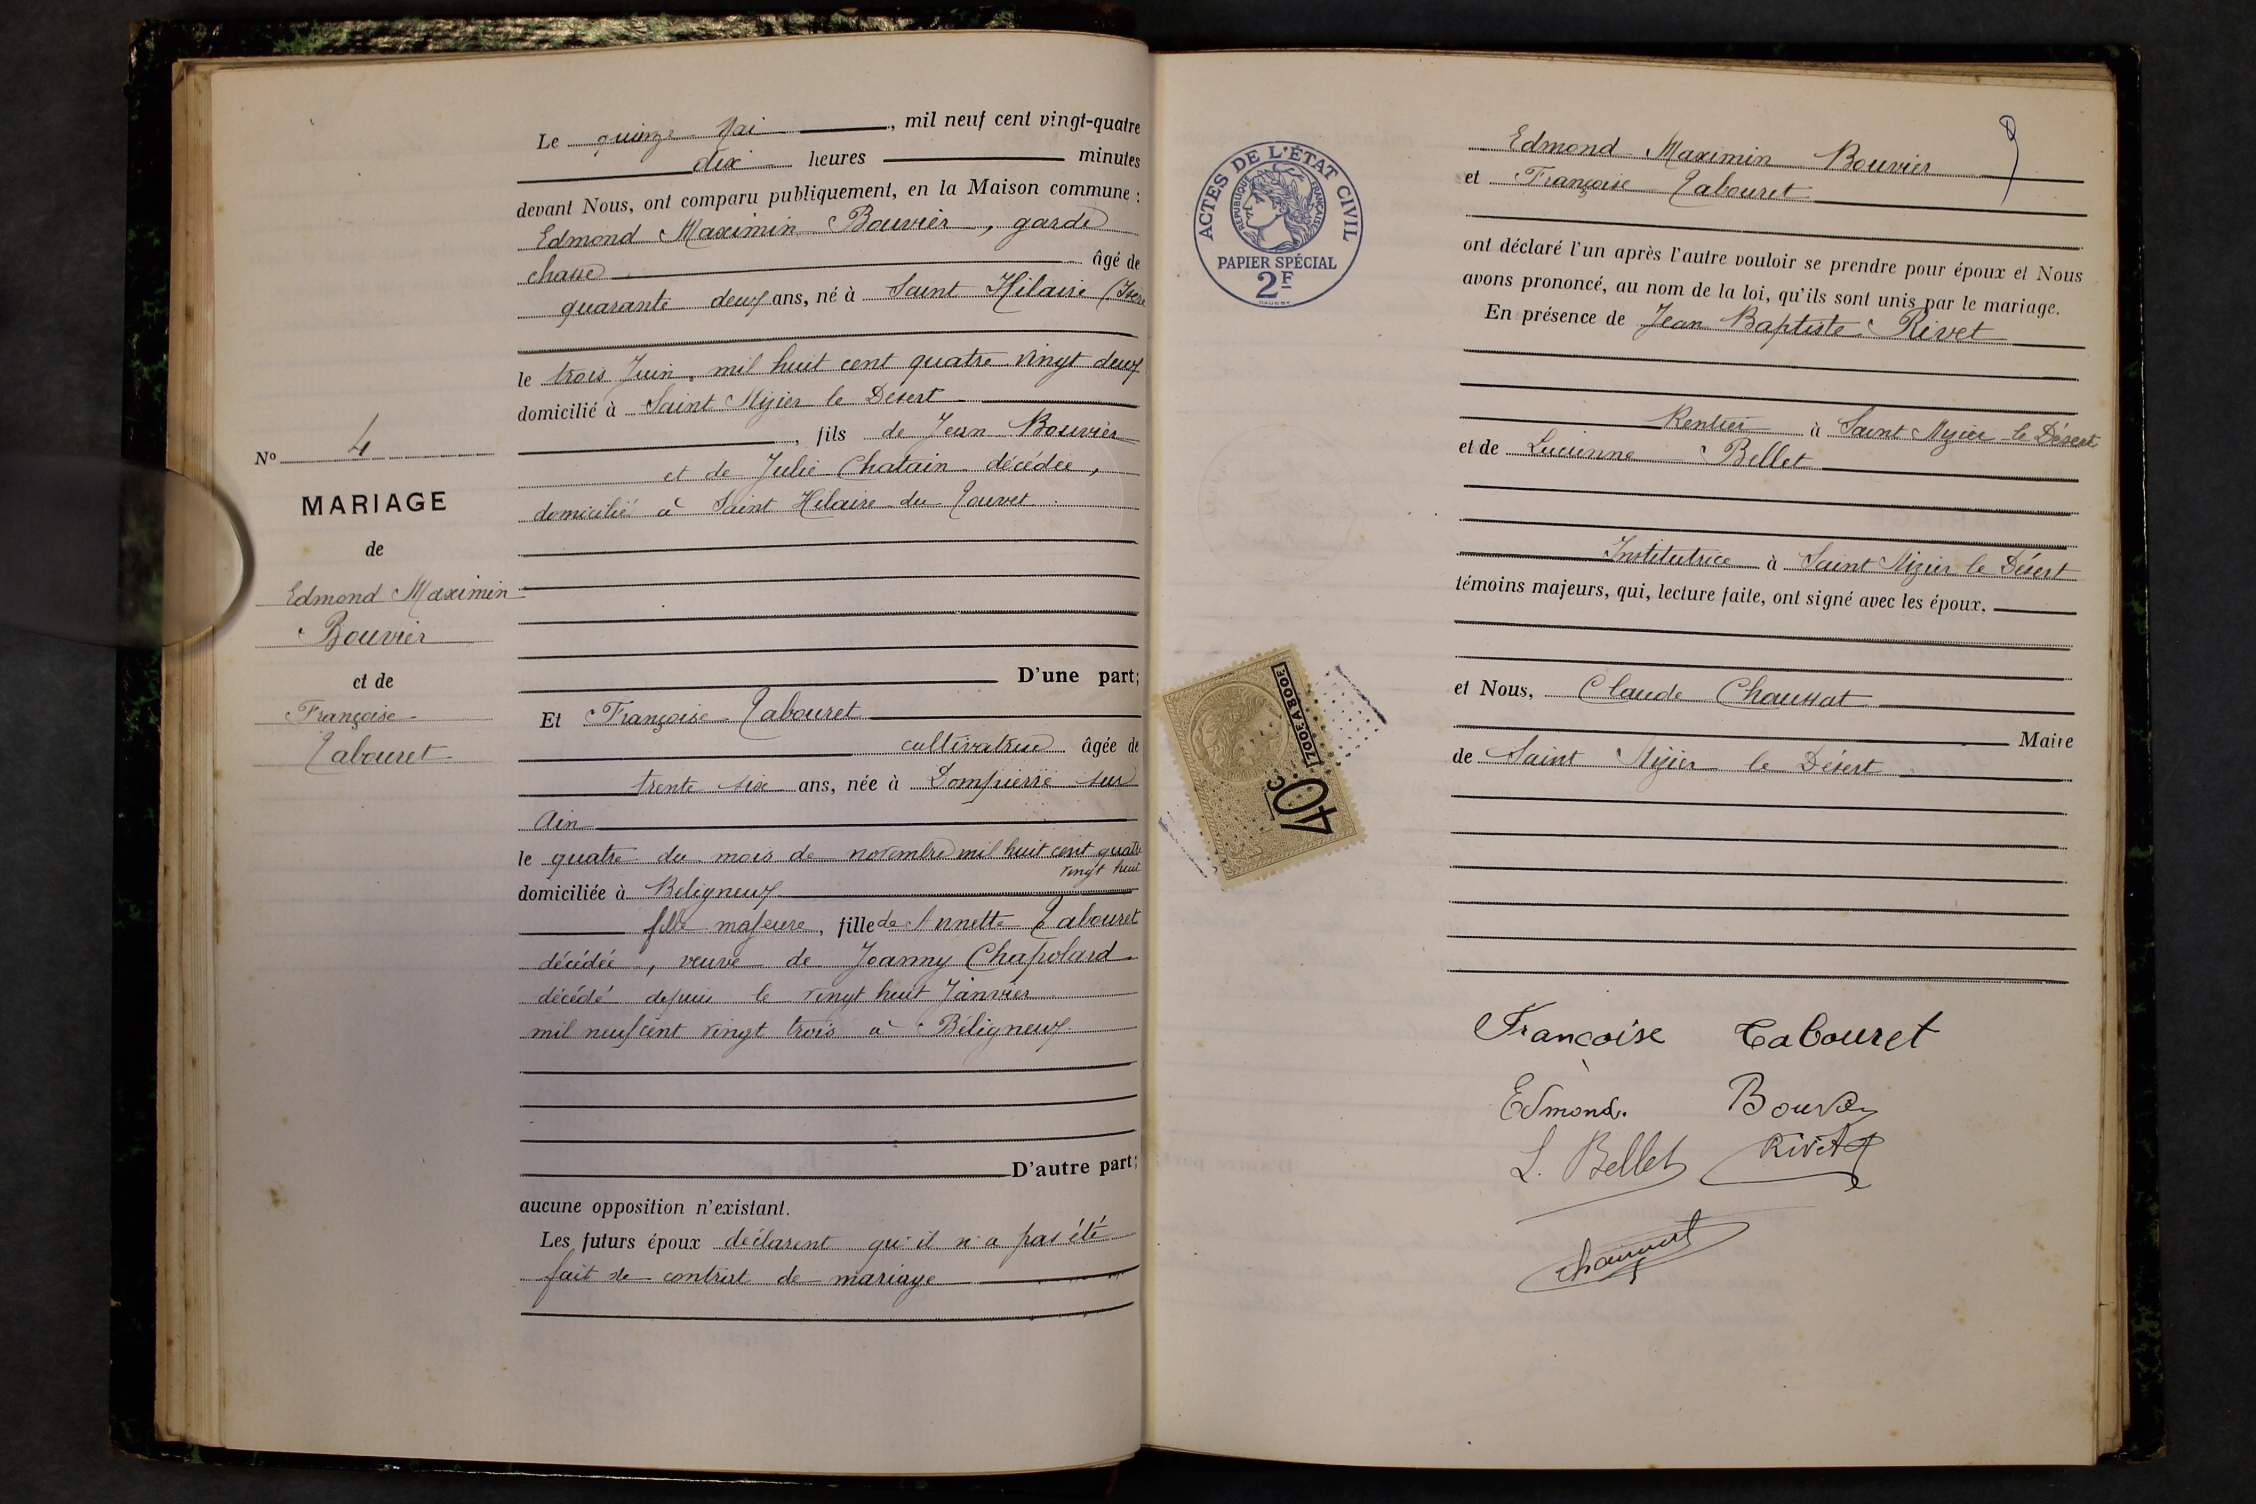 Le quinze Mai, mil neuf cent vingt-quatre
dix heures minutes
devant Nous, ont comparu publiquement, en la Maison commune :
Edmond Maximin Bouvier, garde
chasse âgé de
quarante deux ans, né à Saint Hilaire (Isère
le trois Juin, mil huit cent quatre vingt deux
domicilié à Saint Nizier le Désert
, fils de Jean Bouvier
et de Julie Chatain décédée,
domicilié à Saint Hilaire du Touvet.
D'une part;
Et Françoise Tabouret
cultivatrice âgée de
trente six ans, née à Dompierre sur
Ain
le quatre du mois de novembre mil huit cent quatre
vingt huit
domiciliée à Beligneux
fille majeure, fille de Annette Tabouret
décédée, veuve de Joanny Chapolard
décédé depuis le vingt huit Janvier
mil neuf cent vingt trois à Béligneux.
D'autre part;
aucune opposition n'existant.
Les futurs époux déclarent qu'il n'a pas été
fait de contrat de mariage
No 4
MARIAGE
de
Edmond Maximin
Bouvier
et de
Françoise
Tabouret
ACTES DE L'ÉTAT CIVIL
RÉPUBLIQUE FRANÇAISE
PAPIER SPÉCIAL
2F
Edmond Maximin Bouvier
et Françoise Tabouret
ont déclaré l'un après l'autre vouloir se prendre pour époux et Nous
avons prononcé, au nom de la loi, qu'ils sont unis par le mariage.
En présence de Jean Baptiste Rivet
Rentier à Saint Nizier le Désert
et de Lucienne Bellet
Institutrice à Saint Nizier le Désert
témoins majeurs, qui, lecture faite, ont signé avec les époux.
et Nous, Claude Chaussat
Maire
de Saint Nizier le Désert
40c
700F. A 800F.
Francoise Tabouret
Edmond. Bouvier
L. Bellet Rivet
Chaussat